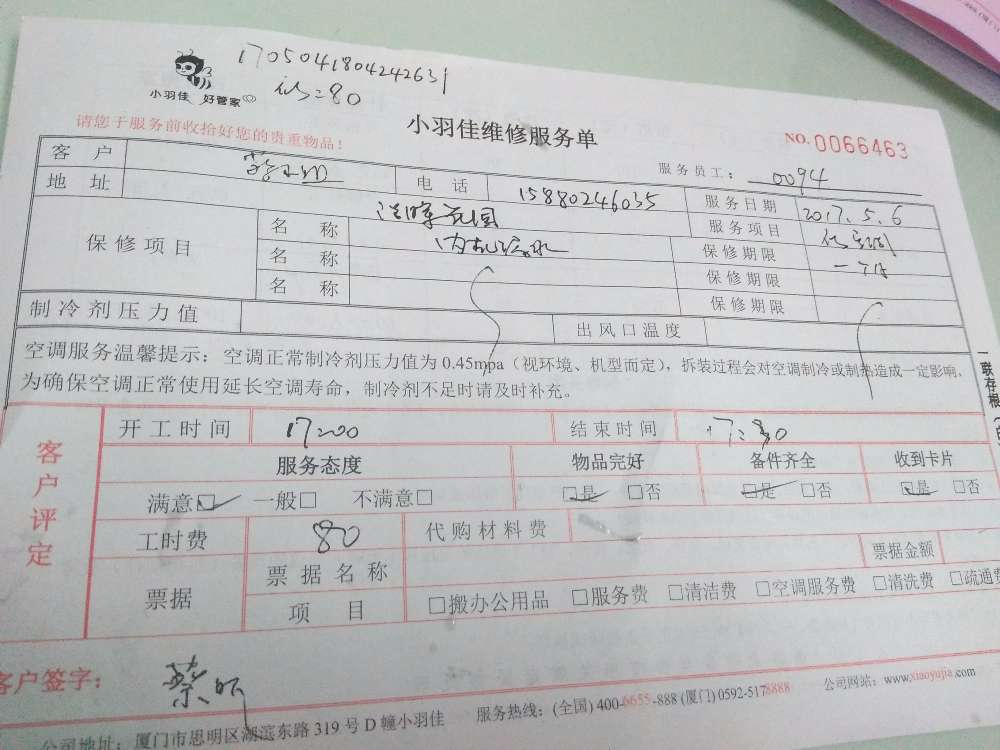 1705041804242631
=80
小羽佳 好管家
小羽佳维修服务单
NO.0066463
请您于服务前收拾好您的贵重物品！
服务员工： 0094
客 户 电 话 15880246035 服务日期 2017.5.6
地 址 花园 服务项目
保修项目 名 称 内机 水 保修期限 一个月
名 称 保修期限
名 称 保修期限
制冷剂压力值 出风口温度
空调服务温馨提示：空调正常制冷剂压力值为 0.45mpa（视环境、机型而定），拆装过程会对空调制冷或制热造成一定影响，
为确保空调正常使用延长空调寿命，制冷剂不足时请及时补充。
一联存根
客户评定
开工时间 17:00 结束时间 17:30
服务态度 物品完好 备件齐全 收到卡片
满意☑ 一般□ 不满意□ ☑是 □否 ☑是 □否 ☑是 □否
工时费 80 代购材料费
票据 票据名称 票据金额
项 目 □搬办公用品 □服务费 □清洁费 □空调服务费 □清洗费 □疏通费
客户签字： 蔡
公司地址：厦门市思明区湖滨东路 319 号 D 幢小羽佳 服务热线：(全国) 400-6655-888 (厦门) 0592-5178888 公司网站：www.xiaoyujia.com